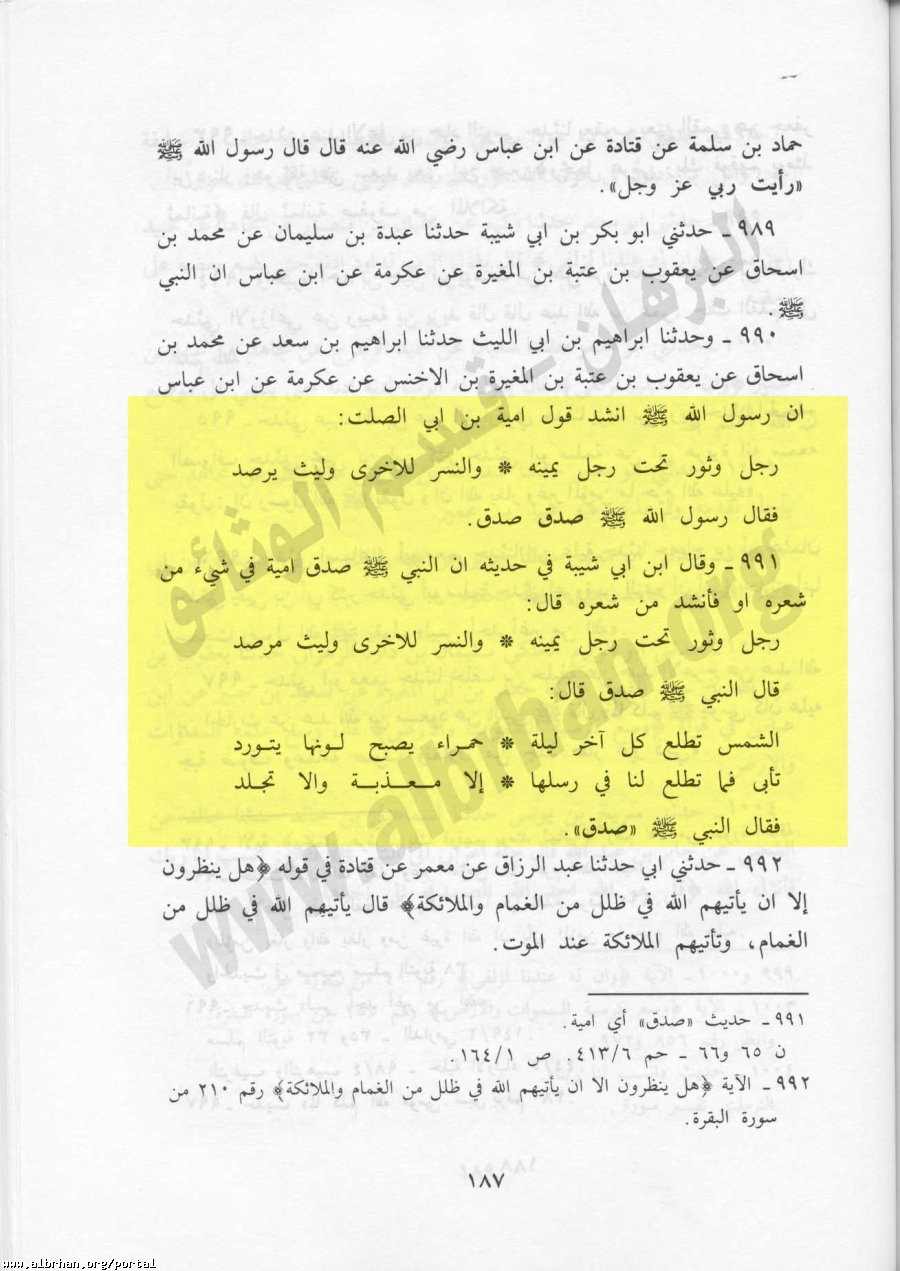 حماد بن سلمة عن قتادة عن ابن عباس رضي الله عنه قال قال رسول الله ﷺ
«رأيت ربي عز وجل».
٩٨٩ ـ حدثني ابو بكر بن ابي شيبة حدثنا عبدة بن سليمان عن محمد بن
اسحاق عن يعقوب بن عتبة بن المغيرة عن عكرمة عن ابن عباس ان النبي
ﷺ.
٩٩٠ ـ وحدثنا ابراهيم بن ابي الليث حدثنا ابراهيم بن سعد عن محمد بن
اسحاق عن يعقوب بن عتبة بن المغيرة بن الاخنس عن عكرمة عن ابن عباس
ان رسول الله ﷺ انشد قول امية بن ابي الصلت:
رجل وثور تحت رجل يمينه * والنسر للاخرى وليث يرصد
فقال رسول الله ﷺ صدق صدق.
٩٩١ ـ وقال ابن ابي شيبة في حديثه ان النبي ﷺ صدق امية في شيء من
شعره او فأنشد من شعره قال:
رجل وثور تحت رجل يمينه * والنسر للاخرى وليث مرصد
قال النبي ﷺ صدق قال:
الشمس تطلع كل آخر ليلة * حمراء يصبح لونها يتورد
تأبى فما تطلع لنا في رسلها * إلا معذبة والا تجلد
فقال النبي ﷺ «صدق».
٩٩٢ ـ حدثني ابي حدثنا عبد الرزاق عن معمر عن قتادة في قوله ﴿هل ينظرون
إلا ان يأتيهم الله في ظلل من الغمام والملائكة﴾ قال يأتيهم الله في ظلل من
الغمام، وتأتيهم الملائكة عند الموت.
٩٩١ ـ حديث «صدق» أي امية.
ن ٦٥ و٦٦ ـ حم ٤١٣/٦. ص ١٦٤/١.
٩٩٢ ـ الآية ﴿هل ينظرون الا ان يأتيهم الله في ظلل من الغمام والملائكة﴾ رقم ٢١٠ من
سورة البقرة.
١٨٧
البرهان - قسم الوثائق
www.albrhan.org
www.albrhan.org/portal